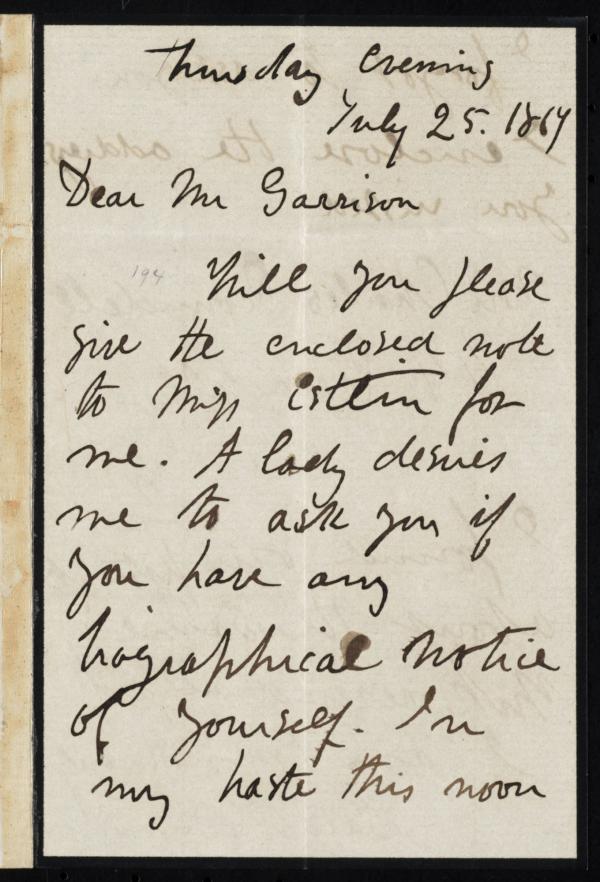 Thursday evening
July 25. 1867
Dear Mr Garrison
194
Will you please
give the enclosed note
to Miss Estlin for
me. A lady desires
me to ask you if
you have any
biographical notice
of yourself. In
my haste this noon